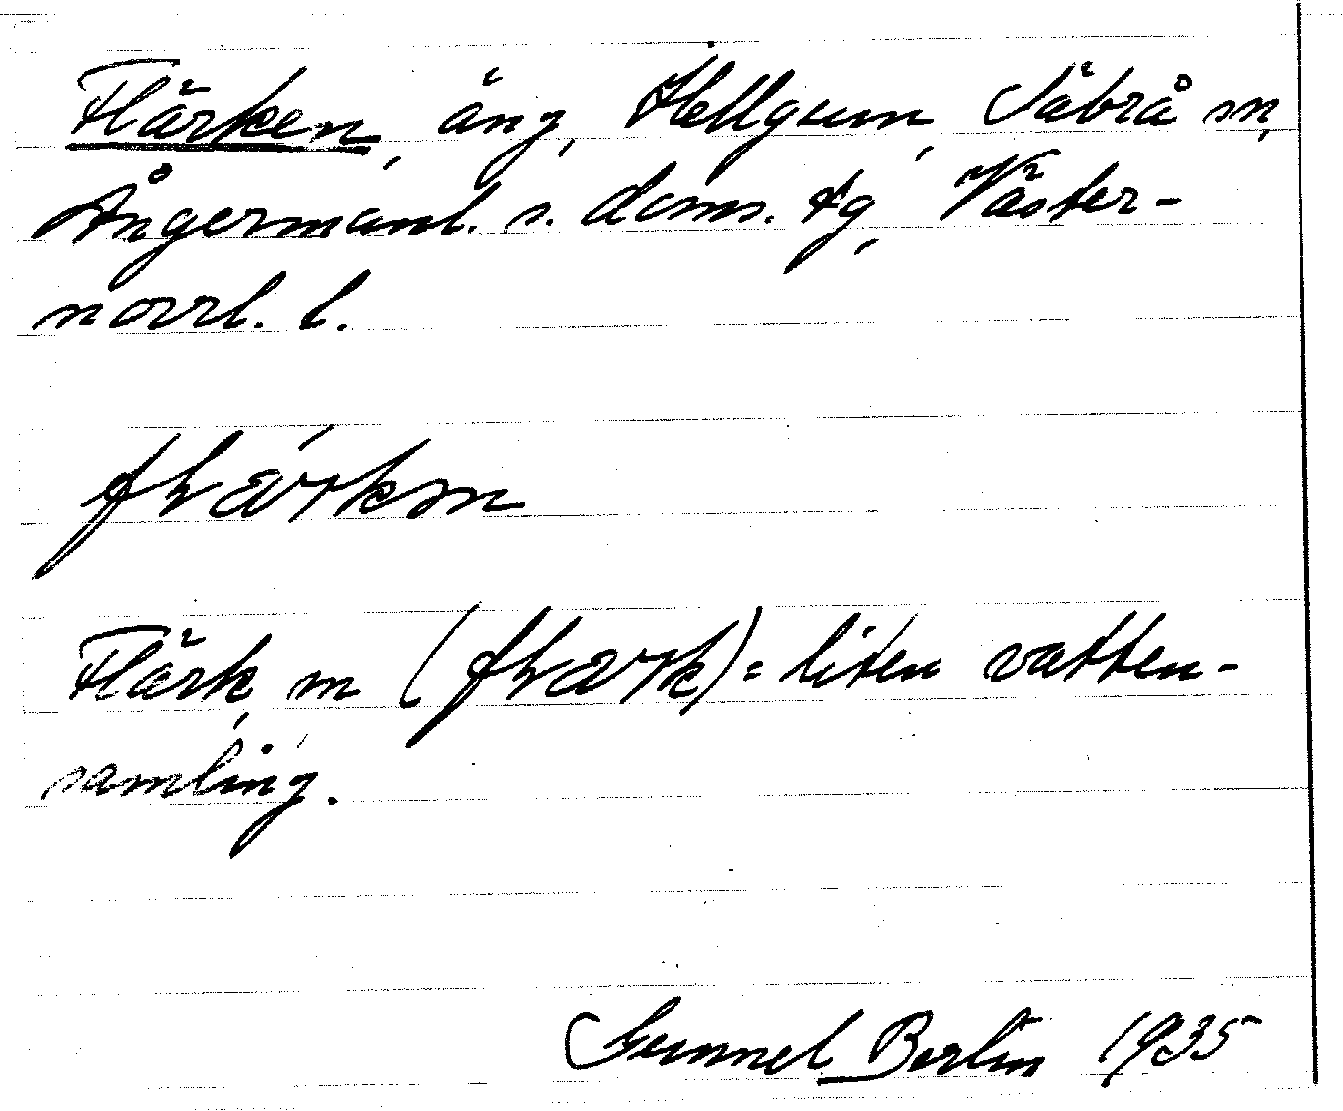 Flärken, äng, Hellgum, Säbrå sn,
Ångermanl. s. doms. tg, Väster-
norrl. l.
flærkm
Flärk, m (flærk) = liten vatten-
samling.
Gunnel Berlin 1935